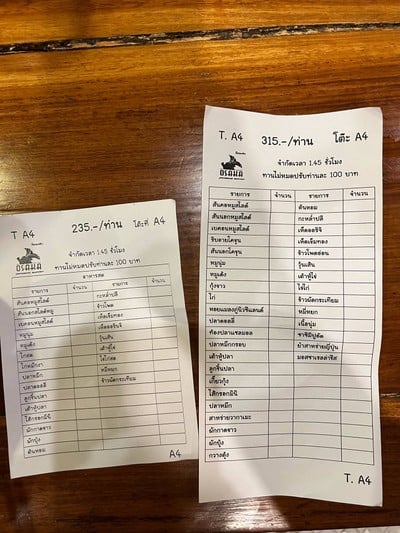 T A4 235.-/ท่าน โต๊ะที่ A4
OSAKA
จำกัดเวลา 1.45 ชั่วโมง
ทานไม่หมดปรับท่านละ 100 บาท
อาหารสด
รายการ จำนวน รายการ จำนวน
สันคอหมูสไลด์ กะหล่ำปลี
สันนอกหมูสไลด์ ข้าวโพด
เบคอนหมูสไลด์ เห็ดเข็มทอง
หมูนุ่ม เห็ดออรินจิ
หมูเด้ง วุ้นเส้น
ไก่สด เต้าหู้ไข่
ไก่หมักงา ไข่ไก่สด
ปลาหมึก หมี่หยก
ปลาดอลลี่ ข้าวผัดกระเทียม
ลูกชิ้นปลา
เต้าหู้ปลา
ไส้กรอกมินิ
ผักกาดขาว
ผักบุ้ง
ต้นหอม
A4
T. A4 315.-/ท่าน โต๊ะ A4
OSAKA
จำกัดเวลา 1.45 ชั่วโมง
ทานไม่หมดปรับท่านละ 100 บาท
รายการ จำนวน รายการ จำนวน
สันคอหมูสไลด์ ต้นหอม
สันนอกหมูสไลด์ กะหล่ำปลี
เบคอนหมูสไลด์ เห็ดออรินจิ
ริบอายโคขุน เห็ดเข็มทอง
สันนอกโคขุน ข้าวโพดอ่อน
หมูนุ่ม วุ้นเส้น
หมูเด้ง เต้าหู้ไข่
กุ้งขาว ไข่ไก่
ไก่ ข้าวผัดกระเทียม
หอยแมลงภู่นิวซีแลนด์ หมี่หยก
ปลาดอลลี่ เนื้อนุ่ม
ท้องปลาแซลมอน ซาชิมิปูอัด
ปลาหมึกกรอบ ยำสาหร่ายญี่ปุ่น
เต้าหู้ปลา มอสซาเรลล่าชีส
ลูกชิ้นปลา
เกี๊ยวกุ้ง
ไส้กรอกมินิ
ปลาหมึก
สาหร่ายวากาเมะ
ผักกาดขาว
ผักบุ้ง
กวางตุ้ง
T. A4